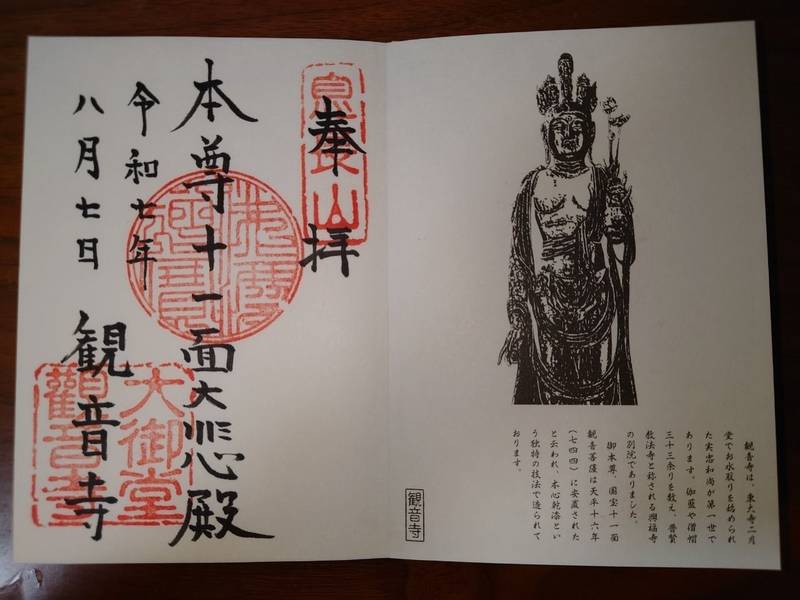 観音寺は、東大寺二月
堂でお水取りを始められ
た実忠和尚が第一世で
あります。伽藍や僧帽
三十三余りを数え、普賢
教法寺と称される興福寺
の別院でありました。
御本尊、国宝十一面
観音菩薩は天平十六年
(七四四)に安置された
と云われ、木心乾漆とい
う独特の技法で造られて
おります。
観音寺
奉拝
息長山
本尊十一面大悲殿
令和七年
八月七日
観音寺
大御堂
觀音寺